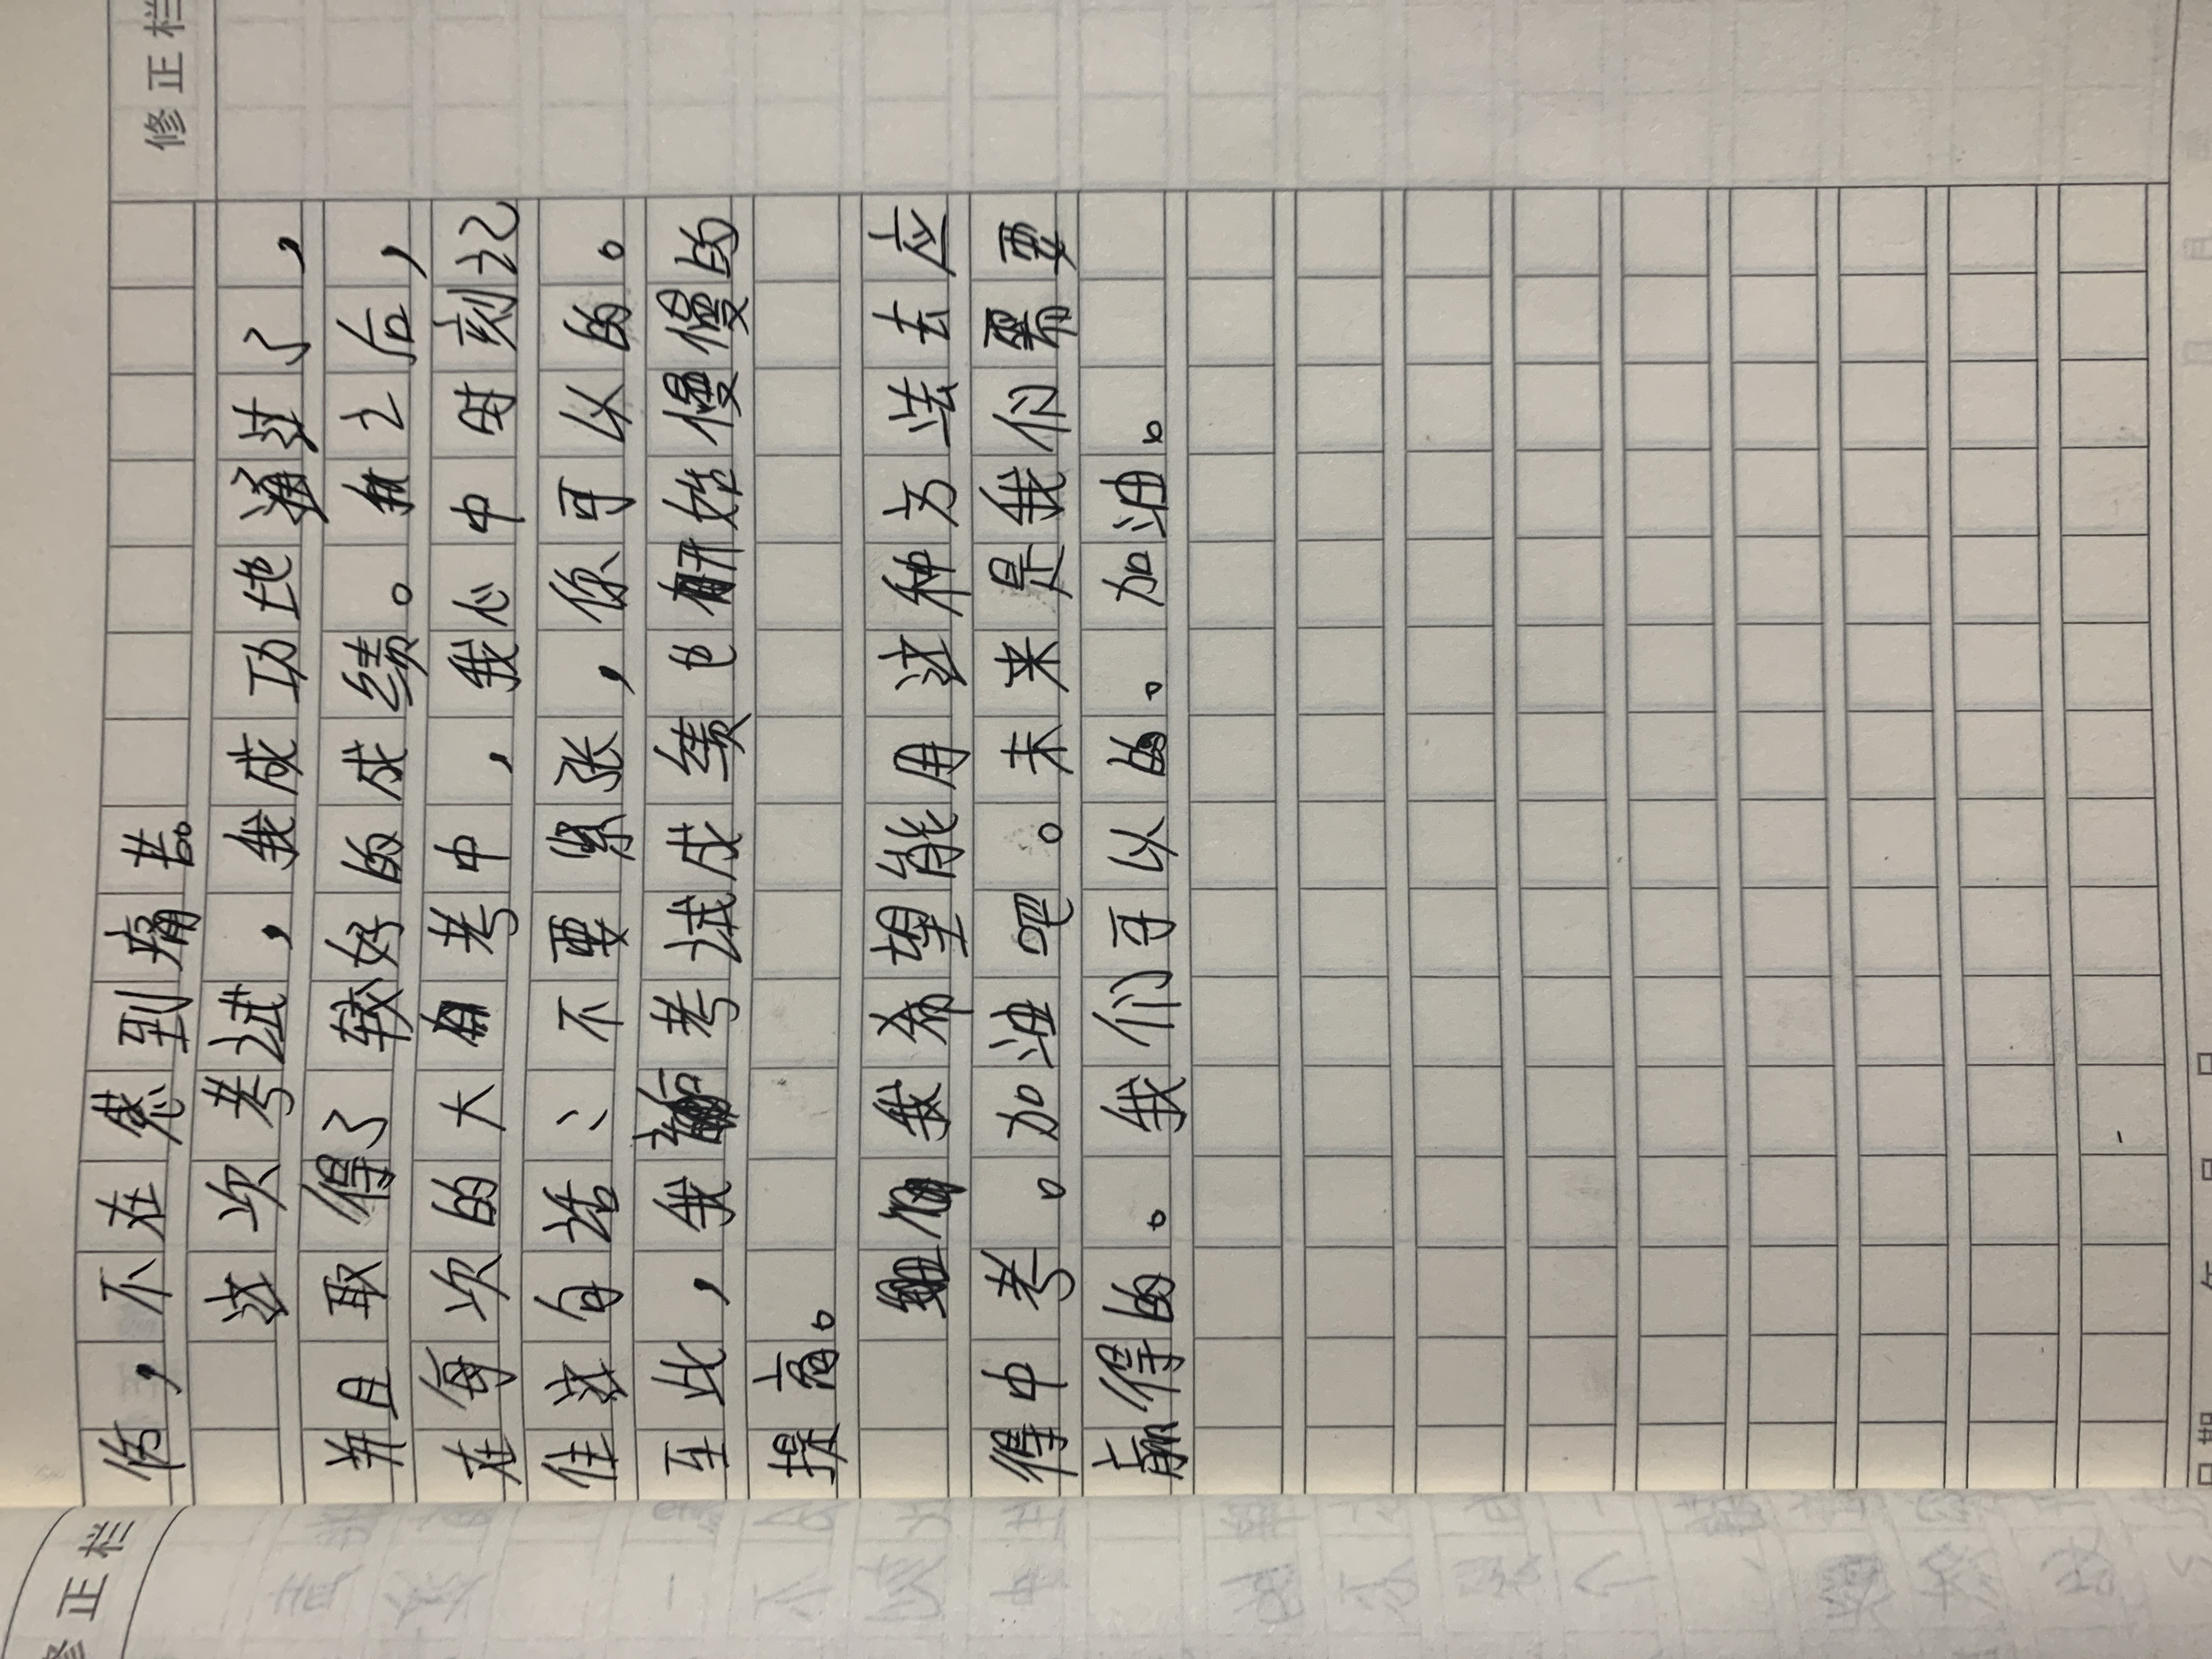 修正栏
伤，不在感到痛苦。
这次考试，我成功地通过了，
并且取得了较好的成绩。之后，
在每次的大考中，我心中时刻记
住这句话：不要紧张，你可以的。
至此，我考试成绩也开始慢慢的
提高。
我希望能用这种方法去应
得中考。加油吧。未来是我们需要
赢得的。我们可以的。加油。
修正栏